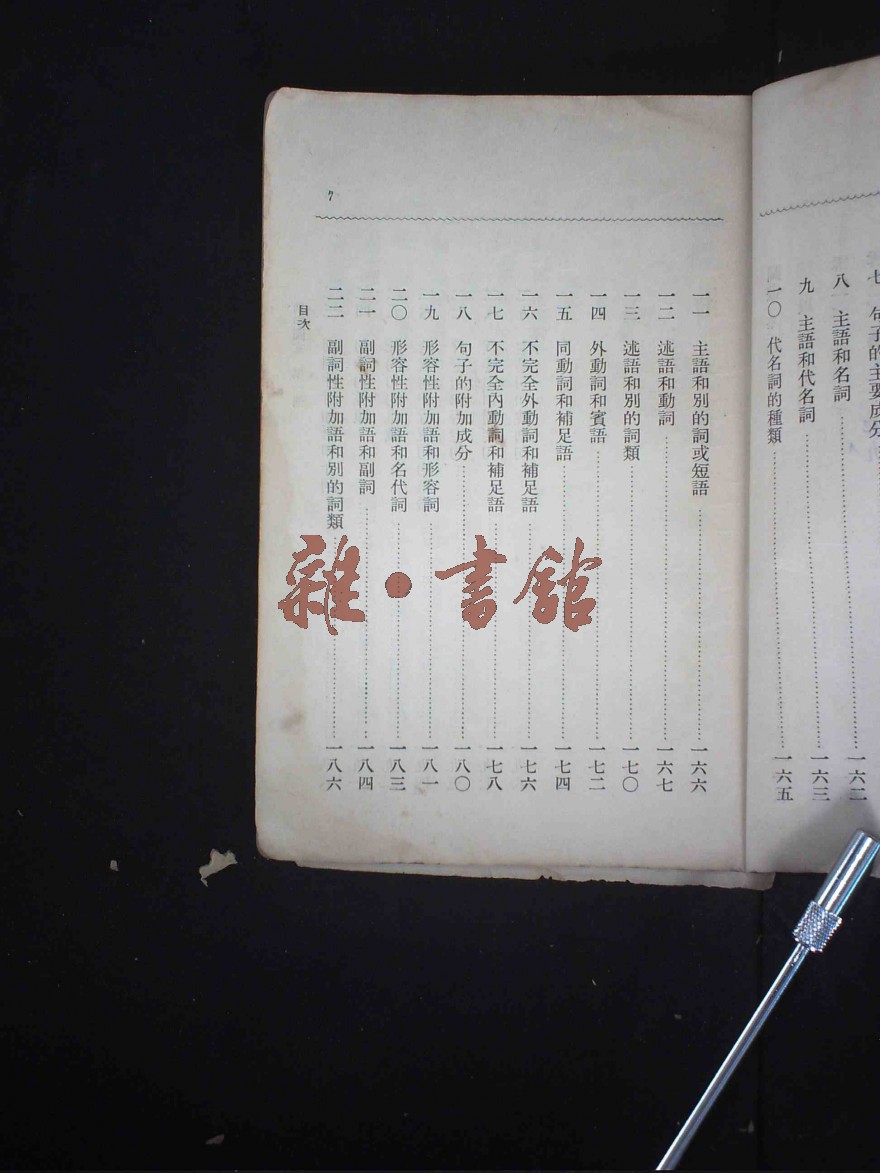 七 句子的主要成分
八 主語和名詞 一六二
九 主語和代名詞 一六三
一〇 代名詞的種類 一六五
一一 主語和別的詞或短語 一六六
一二 述語和動詞 一六七
一三 述語和別的詞類 一七〇
一四 外動詞和賓語 一七二
一五 同動詞和補足語 一七四
一六 不完全外動詞和補足語 一七六
一七 不完全內動詞和補足語 一七八
一八 句子的附加成分 一八〇
一九 形容性附加語和形容詞 一八一
二〇 形容性附加語和名代詞 一八三
二一 副詞性附加語和副詞 一八四
二二 副詞性附加語和別的詞類 一八六
目次
7
雜·書館